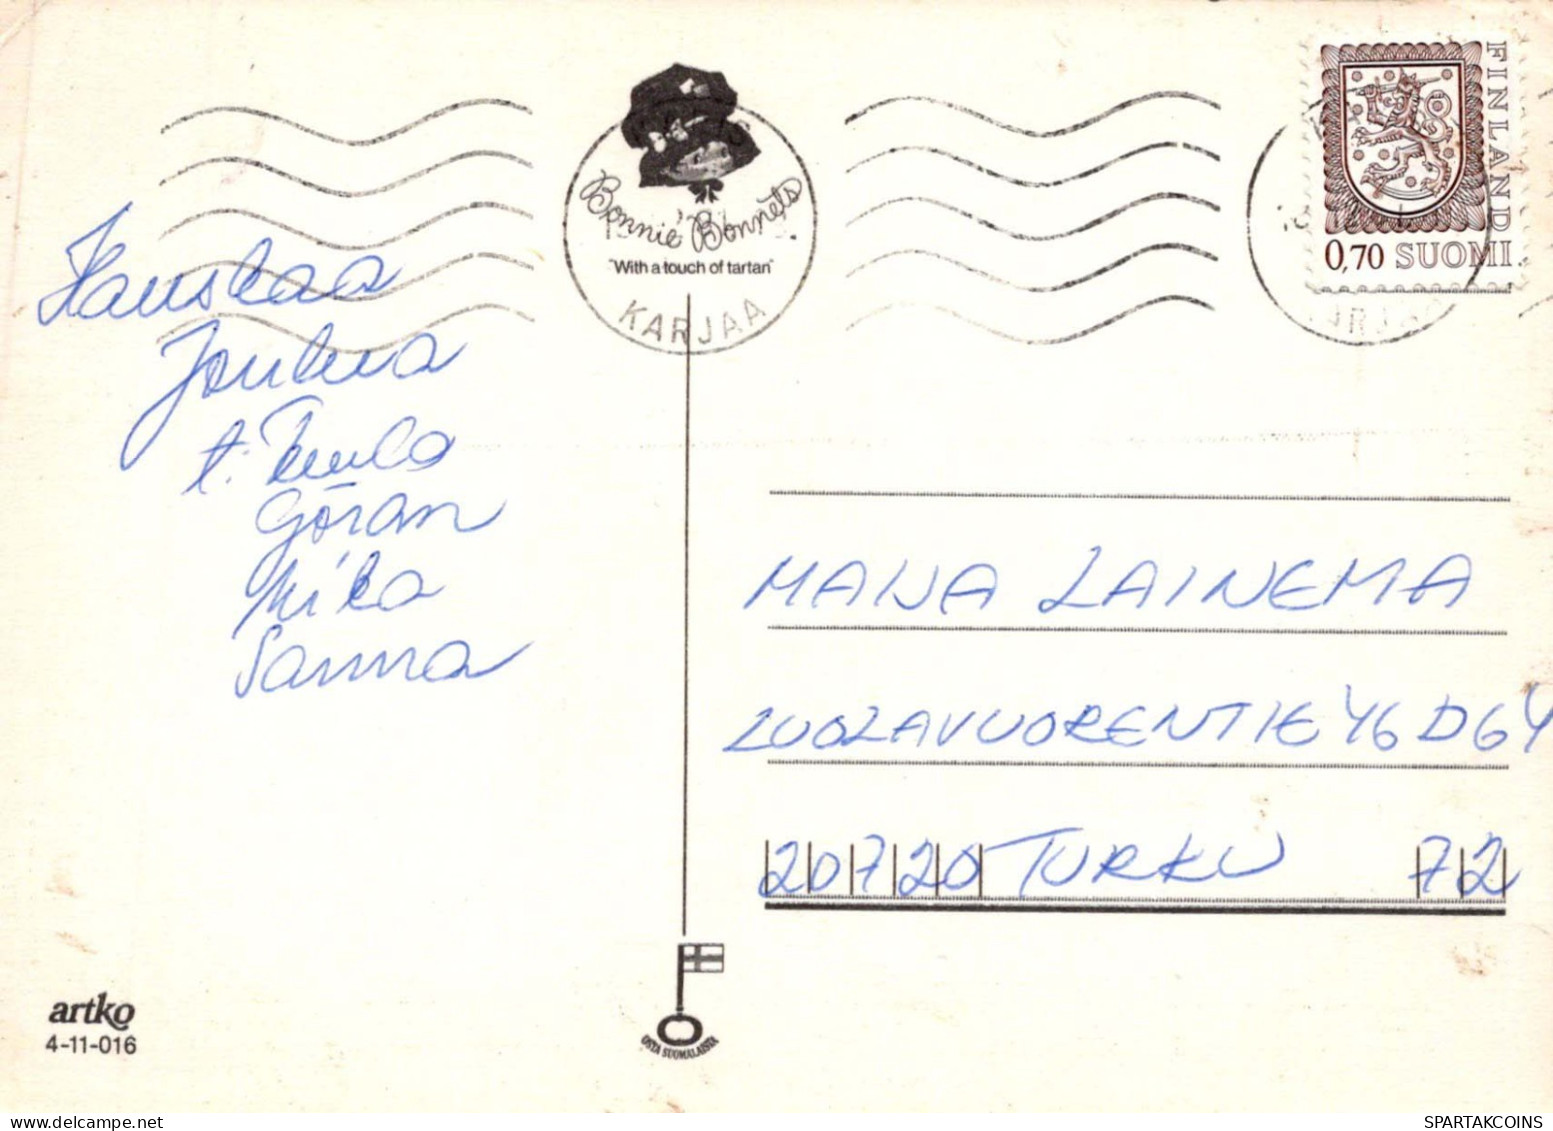 FINLAND
0,70 SUOMI
Bonnie Bonnets
"With a touch of tartan"
KARJAA
Hauskaa
Joulua
t. Tuula
Göran
Mika
Sanna
MAIJA LAINEMA
LUOLAVUORENTIE 46 D 64
20720 TURKU 72
artko
4-11-016
OSTA SUOMALAISTA
SPARTAKCOINS